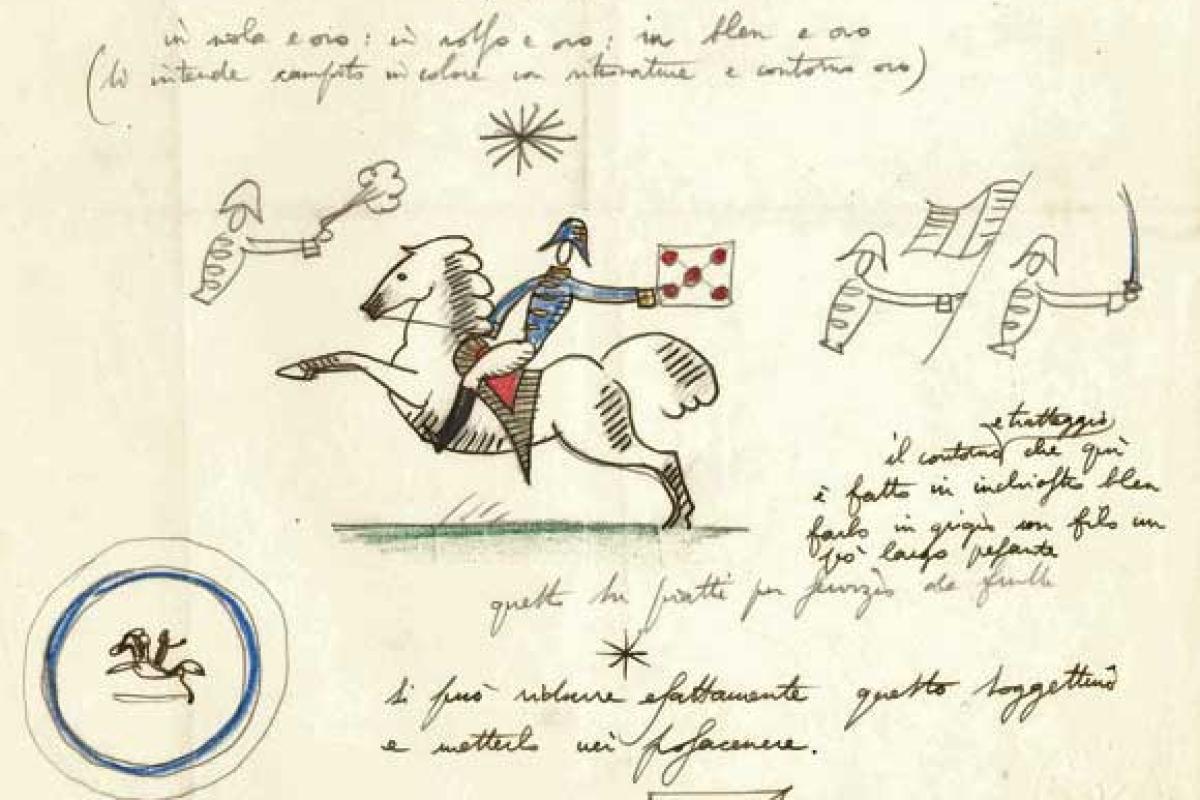 in viola e oro: in rosso e oro: in bleu e oro
(si intende campito in colore con e contorno oro)
e tratteggio
il contorno che qui
è fatto in inchiostro bleu
farlo in grigio con filo un
pò largo pesante
questo su piatti per servizio da frutta
si può ridurre esattamente questo soggettino
e metterlo nei posacenere.